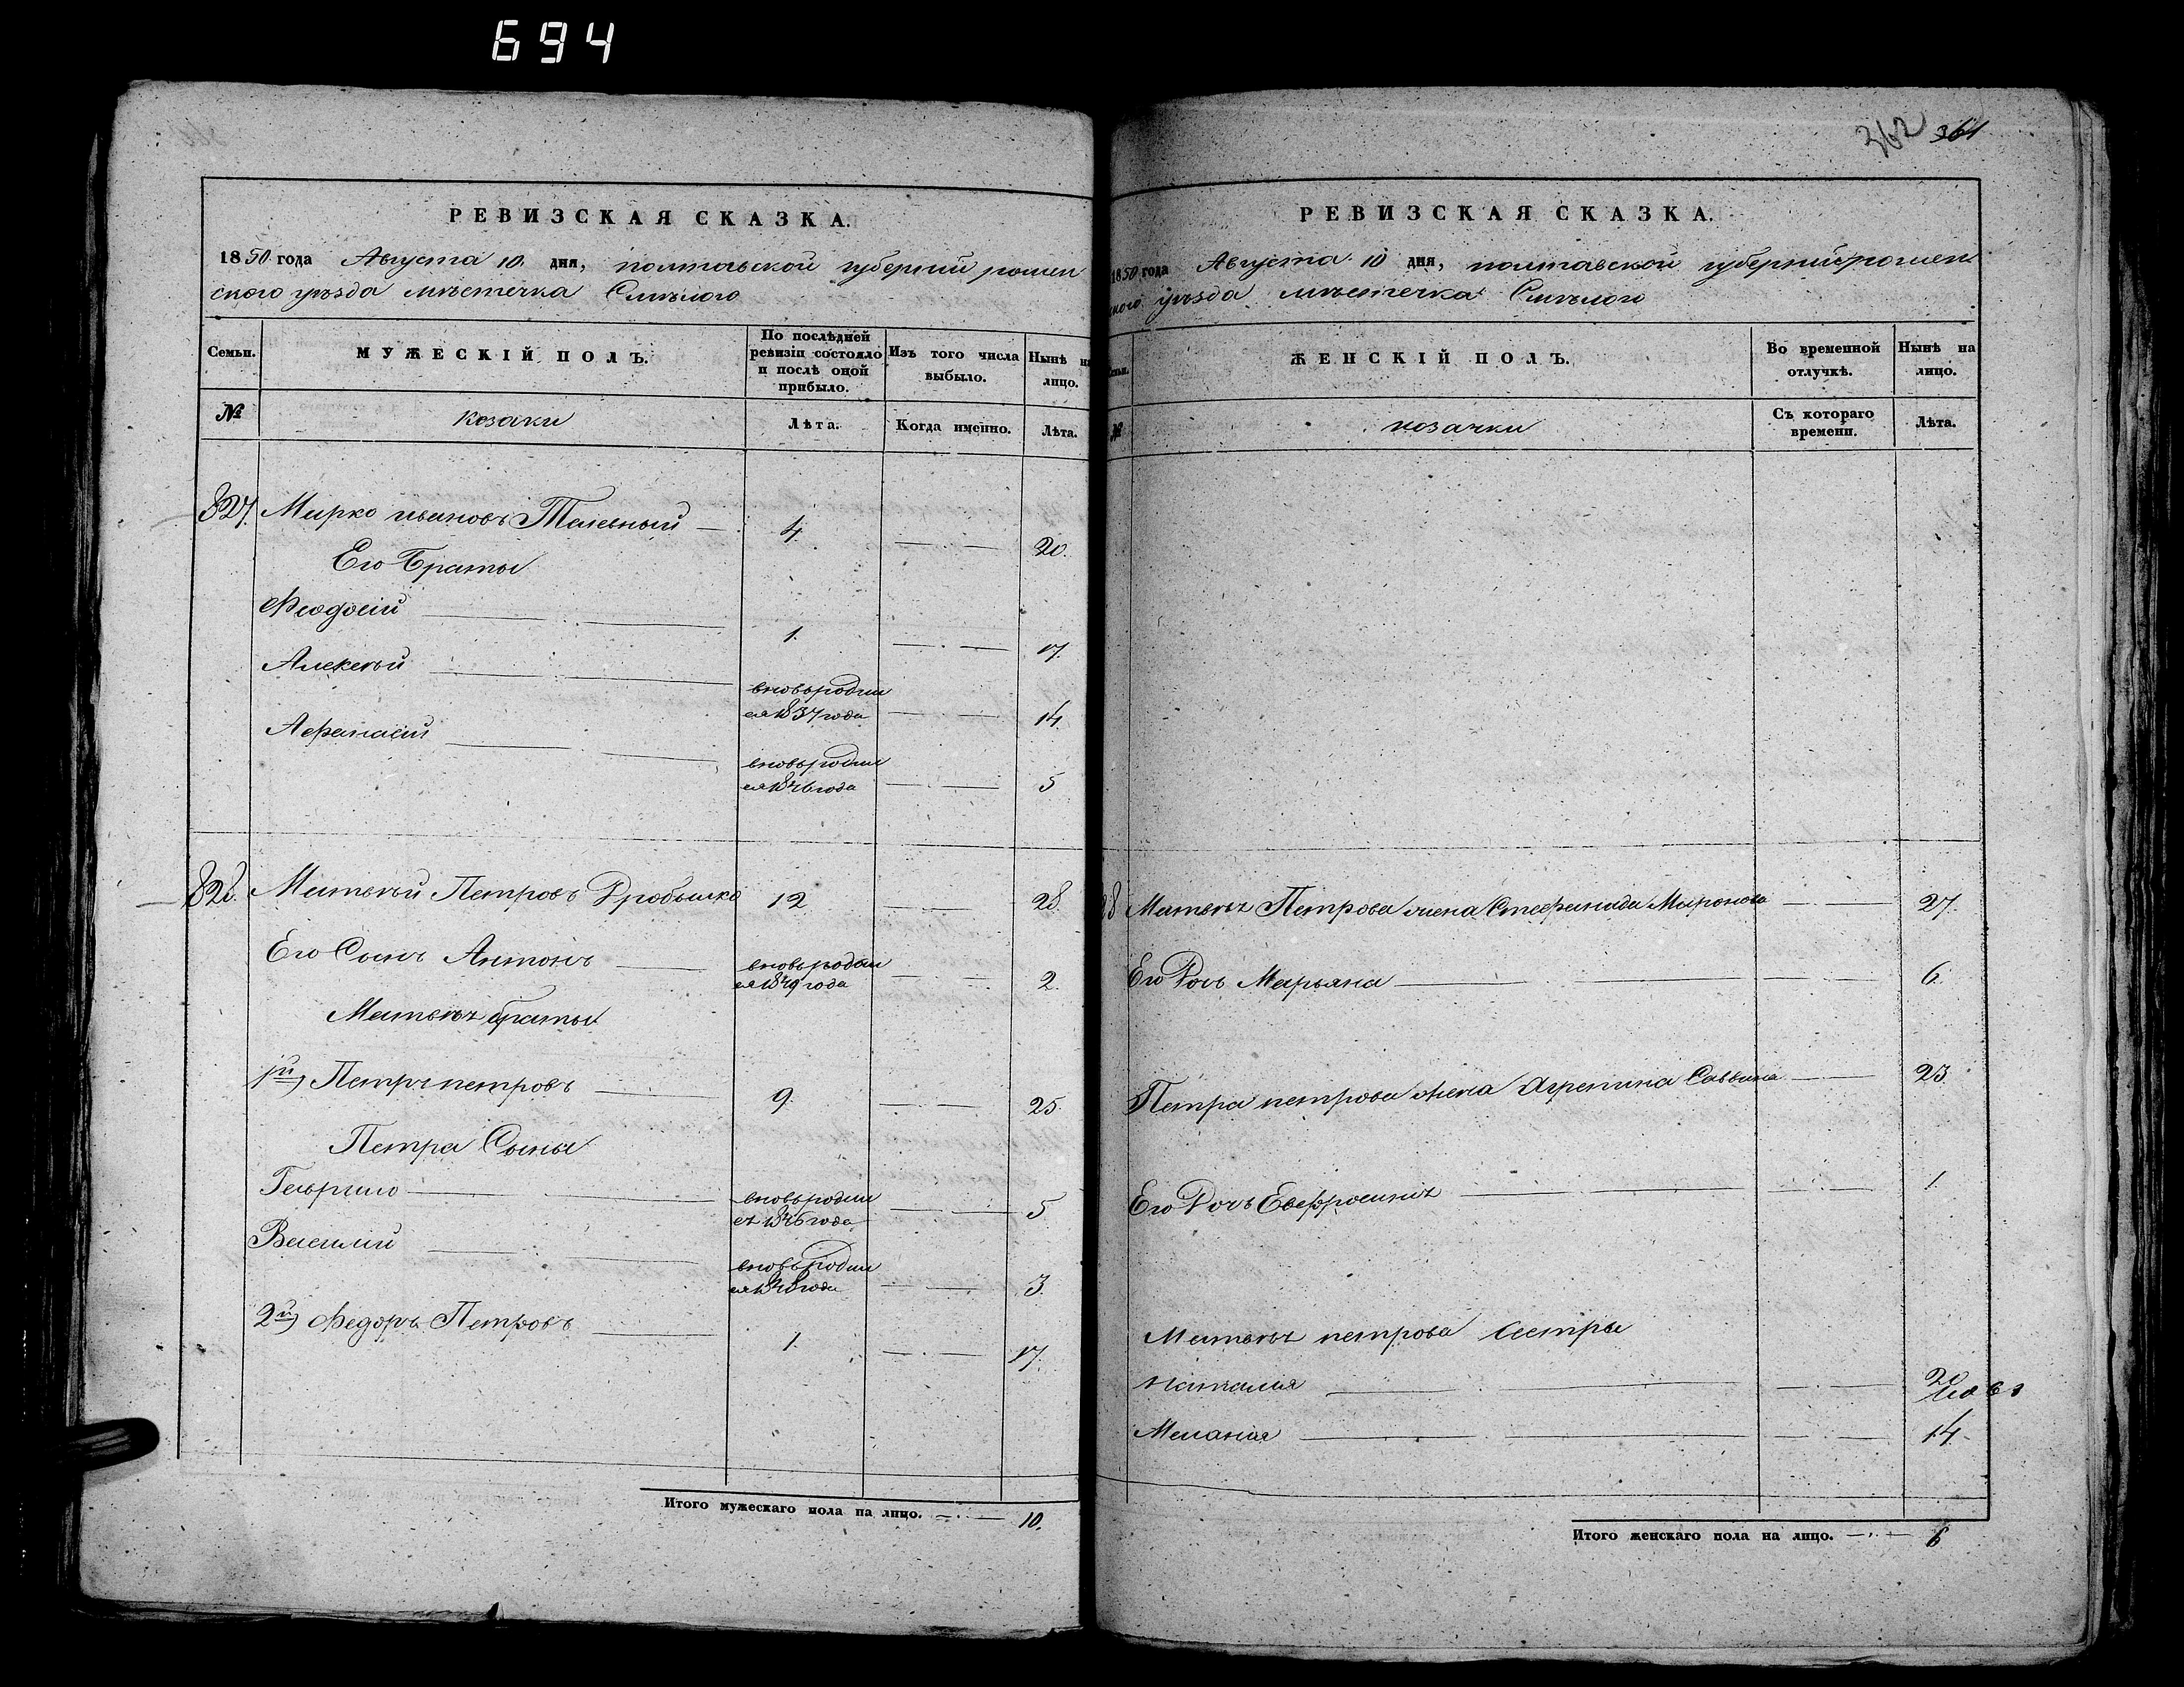 694
РЕВИЗСКАЯ СКАЗКА.
1850 года Августа 10 дня, полтавской губерніи ромен
ского уѣзда мѣстечка Смѣлого
Семьи.
МУЖЕСКІЙ ПОЛЪ.
По послѣдней ревизіи состояло и послѣ оной прибыло.
Изъ того числа выбыло.
Нынѣ на лицо.
№
козаки
Лѣта.
Когда именно.
Лѣта.
827. Мирко ивановъ 4. 20.
Его Браты
Феодосій 1. 17.
Алексѣй вновьродил
ся 1837 года 14.
Афанасій вновьродил
ся 1846 года 5
828. Матвѣй Петровъ Дробышко 12 28.
Его Сынъ Антонъ вновьродил
ся 1849 года 2.
Матвѣя браты
1й) Петръ петровъ 9. 25.
Петра Сыны
Гаврило вновьродил
ся 1846 года 5
Василій вновьродил
ся 1848 года 3.
2й) Федоръ Петровъ 1. 17.
Итого мужескаго пола на лицо. 10.
362 361
РЕВИЗСКАЯ СКАЗКА.
1850 года Августа 10 дня, полтавской губерніи ромен
ского уѣзда мѣстечка Смѣлого
Семьи.
ЖЕНСКІЙ ПОЛЪ.
Во временной отлучкѣ.
Нынѣ на лицо.
№
козачки
Съ котораго времени.
Лѣта.
28 Матвѣя Петрова жена Стефанида Миронова 27.
Его Дочь Марьяна 6.
Петра петрова жена Агрепина Саввина 23.
Его Дочь Евфросинія 1.
Матвѣя петрова сестры
Наталия 20
Мелания 14.
Итого женскаго пола на лицо. 6